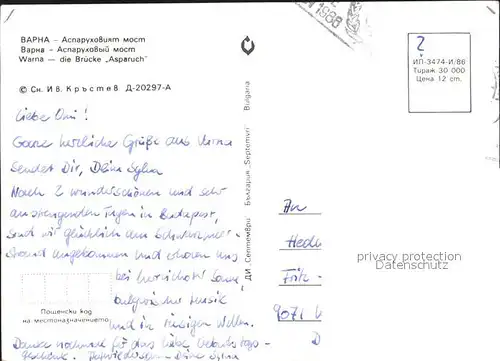 ВАРНА – Аспаруховият мост
Варна – Аспаруховый мост
Warna – die Brücke „Asparuch"
© Сн. Ив. Кръстев Д-20297-А
Liebe Omi!
Ganz herzliche Grüße aus Varna
sendet Dir, Deine Sylvia
Nach 2 wunderschönen und sehr
anstrengenden Tagen in Budapest,
sind wir glücklich am Schwarzmeer-
strand angekommen und erholen uns
bei herrlicher Sonne,
bulgarischer Musik
und in riesigen Wellen.
Danke nochmal für das liebe Geburtstags-
geschenk. Deine Sylvia
Пощенски код
на местоназначението
ДИ „Септември" България „Septemvri" Bulgaria
1986
?
ИП-3474-И/86
Тираж 30 000
Цена 12 ст.
An
Hedi
Fritz-
9071
D
privacy protection
Datenschutz